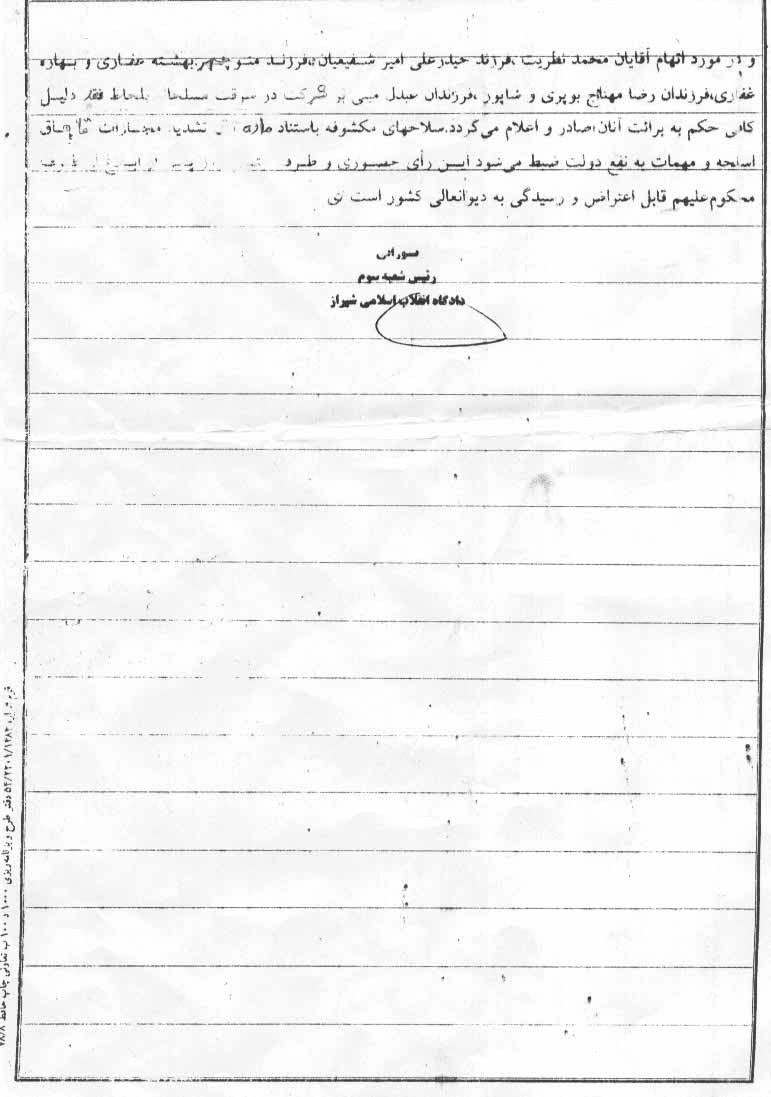 و در مورد اتهام آقایان محمد نظریت ،فرزند حیدرعلی امیر شفیعیان،فرزند منوچهر،بهشته غفاری و بهاره
غفاری،فرزندان رضا مهتاج بویری و شاپور ،فرزندان عبدل مبنی بر شرکت در سرقت مسلحانه بلحاظ فقد دلیل
کافی حکم به برائت آنان صادر و اعلام می‌گردد.سلاحهای مکشوفه باستناد ماده تشدید مجازات قاچاق
اسلحه و مهمات به نفع دولت ضبط می‌شود این رأی حضوری و ظرف روز پس از ابلاغ از طرف
محکوم‌علیهم قابل اعتراض و رسیدگی به دیوانعالی کشور است
رئیس شعبه سوم
دادگاه انقلاب اسلامی شیراز
فرم شماره ۵۴/۲۲۰۱/۱۲۸۲ دفتر طرح و برنامه‌ریزی ۱۰۰۰ د ۱۰۰ ب تعاونی چاپ حافظ ۷۸/۸